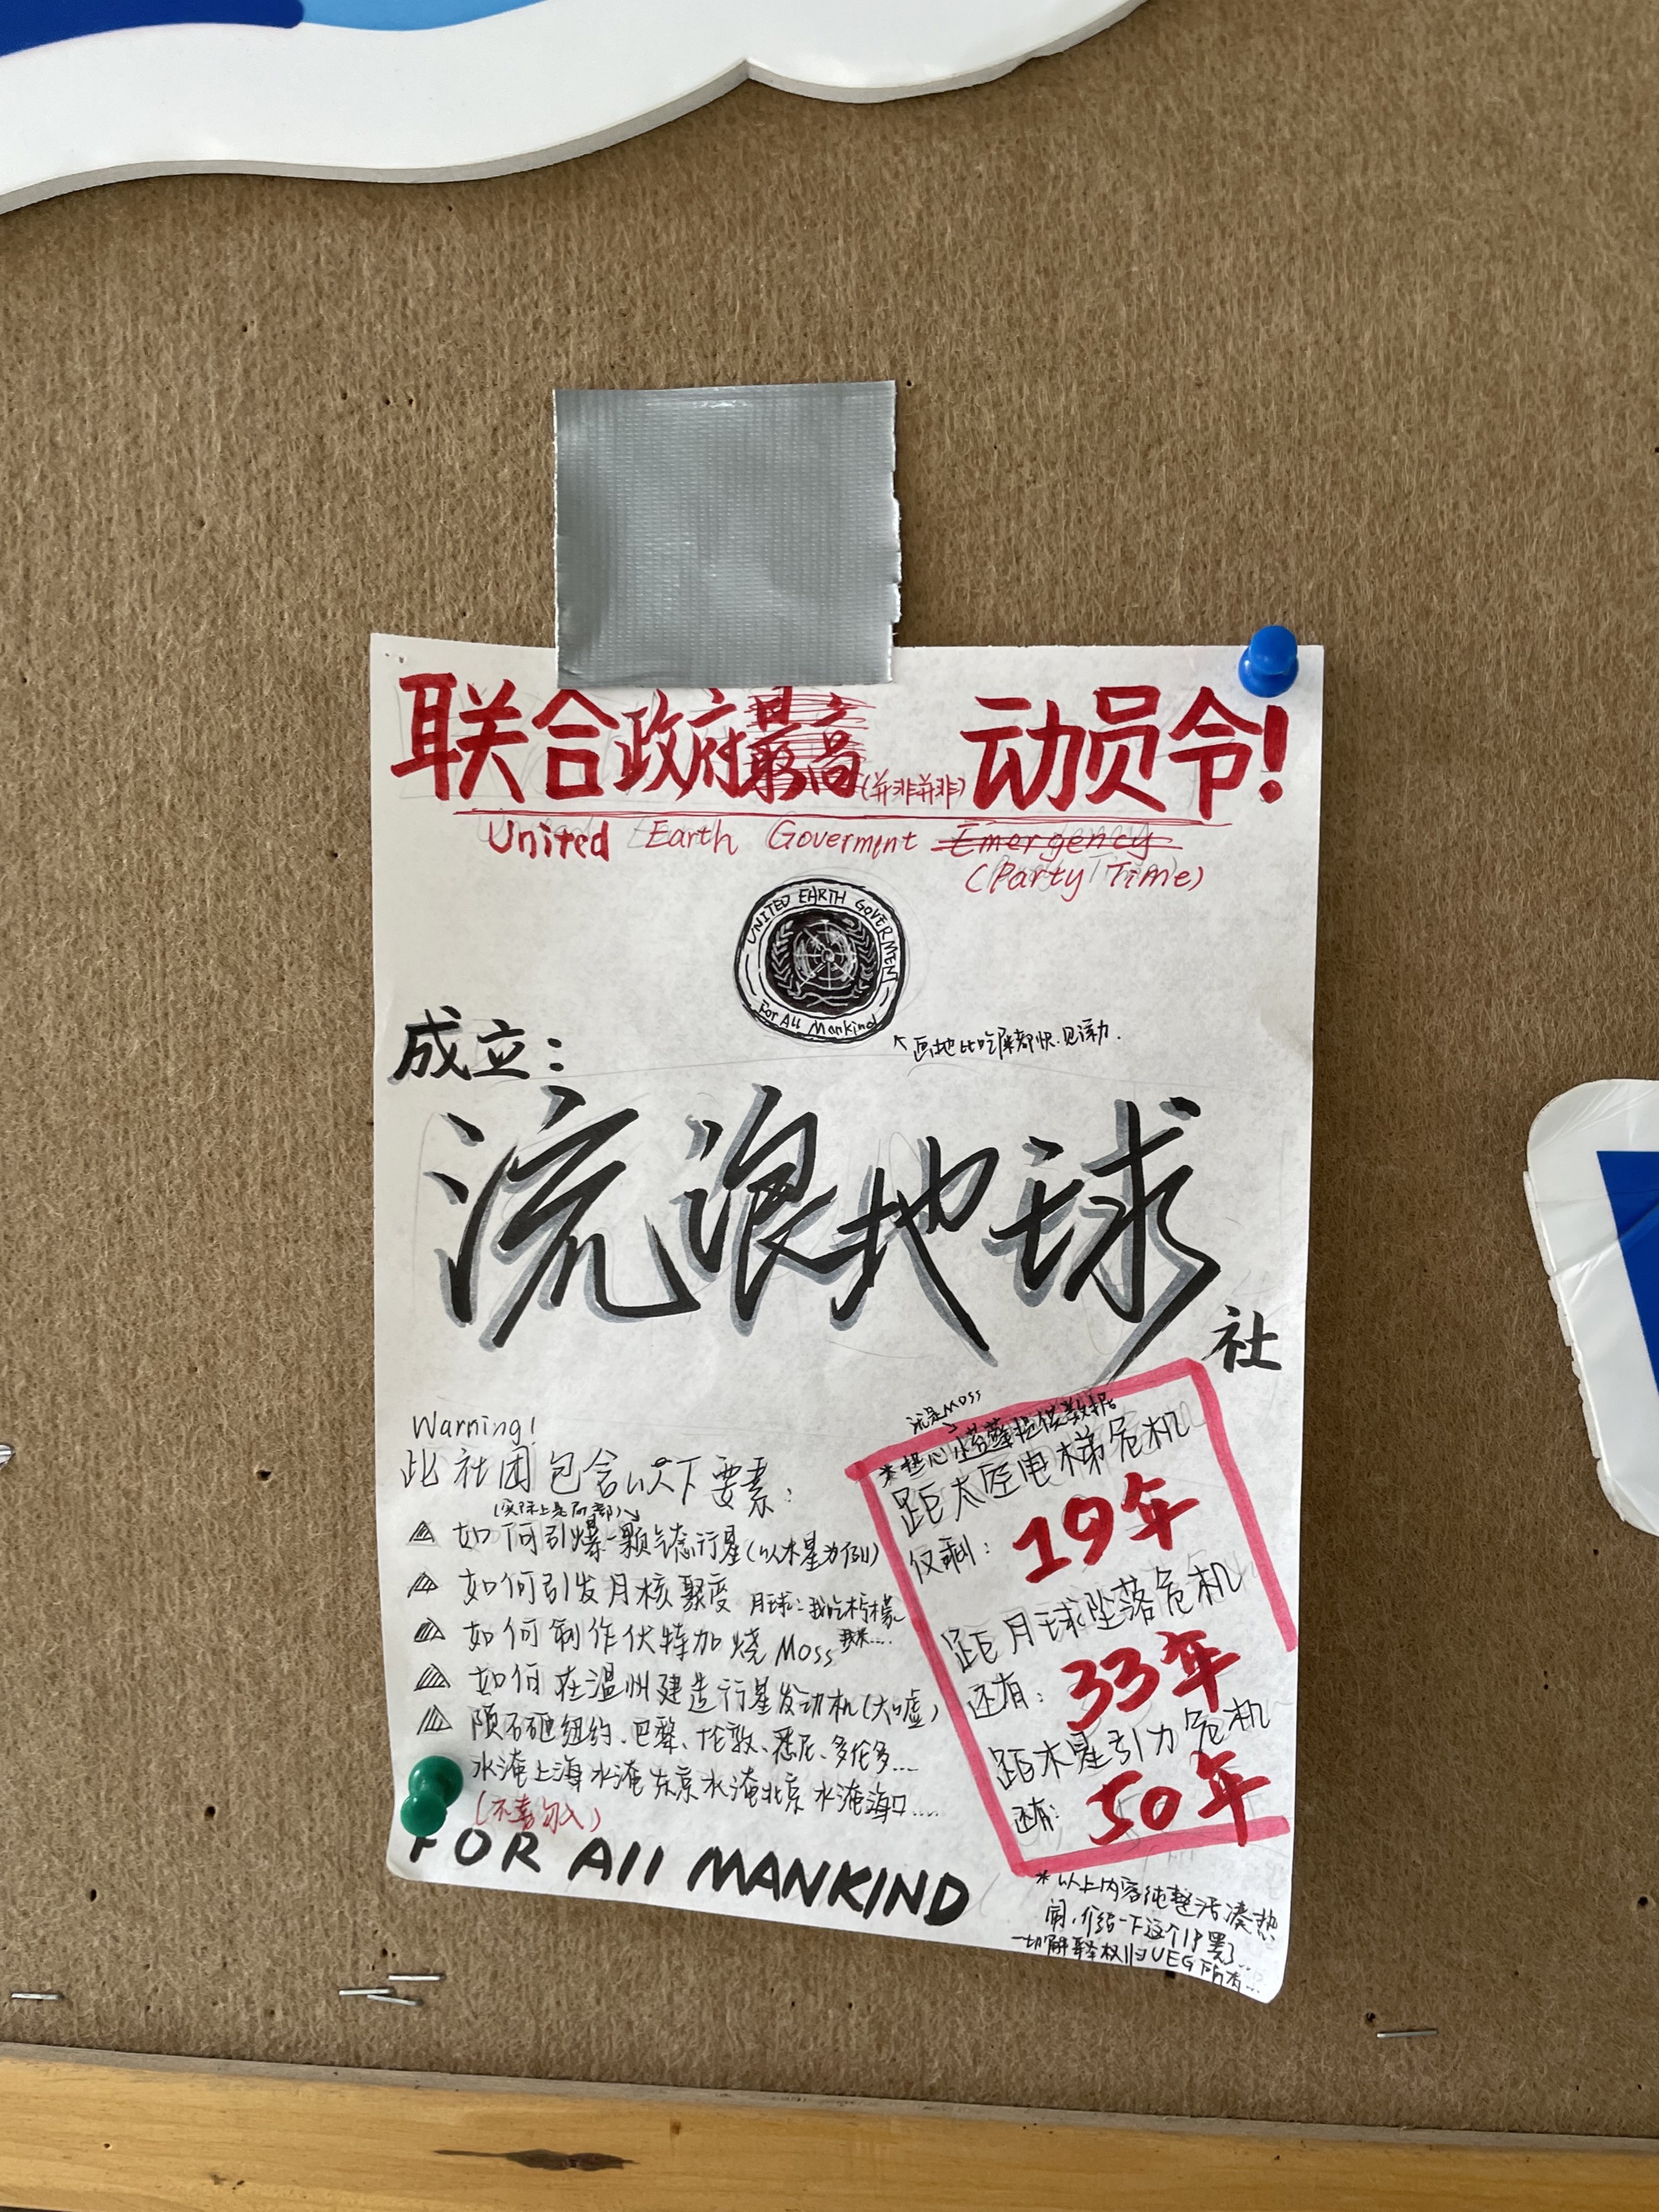 联合政府最高(并非并非)动员令!
United Earth Goverment Emergency
(Party Time)
UNITED EARTH GOVERNMENT
For All Mankind
成立:
流浪地球
社
Warning!
此社团包含以下要素:
(实际上是局部)
如何引爆一颗气态行星(以木星为例)
如何引发月核聚变 月球:我吃柠檬
如何制作伏特加烧Moss
如何在温州建造行星发动机(大嘘)
陨石砸纽约、巴黎、伦敦、悉尼、多伦多……
水淹上海水淹东京水淹北京水淹海口……
(不喜勿入)
FOR All MANKIND
就是MOSS
距太空电梯危机
仅剩: 19年
距月球坠落危机
还有: 33年
距木星引力危机
还有: 50年
*以上内容纯整活凑热
闹,介绍一下这个IP罢了…
一切解释权归UEG所有…